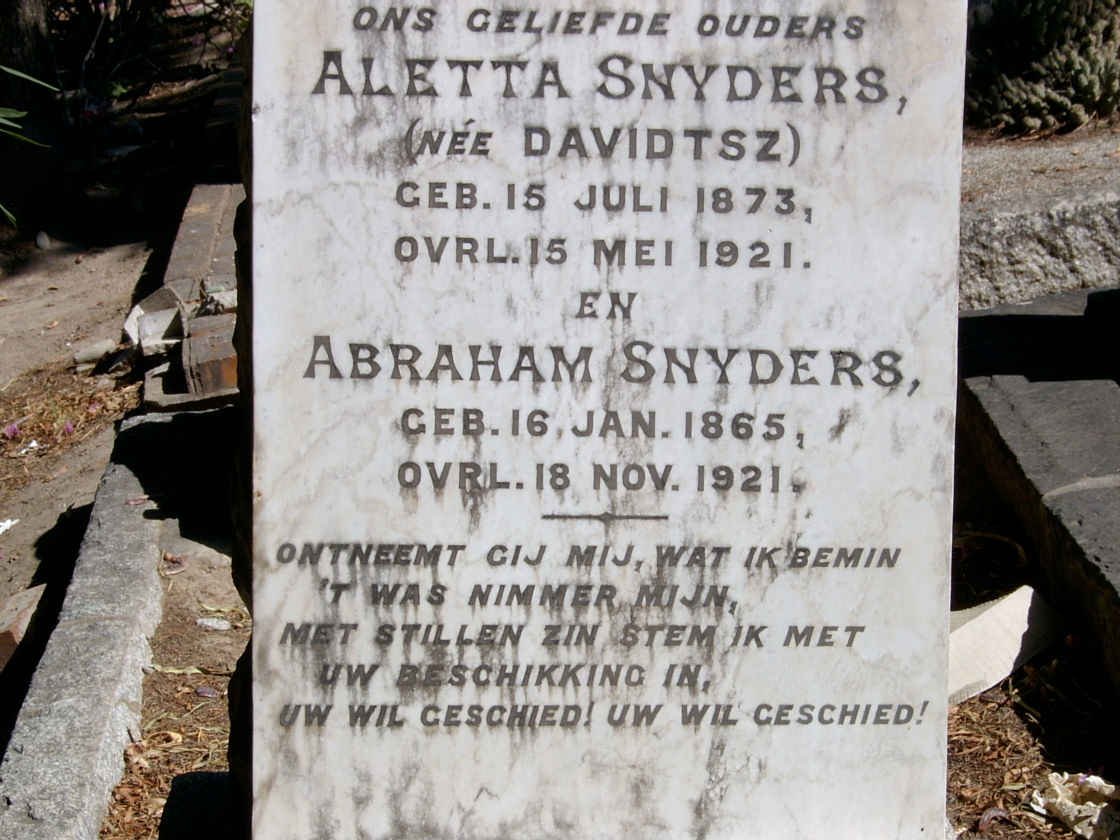 ONS GELIEFDE OUDERS
ALETTA SNYDERS,
(NÉE DAVIDTSZ)
GEB. 15 JULI 1873,
OVRL. 15 MEI 1921.
EN
ABRAHAM SNYDERS,
GEB. 16 JAN. 1865,
OVRL. 18 NOV. 1921.
ONTNEEMT GIJ MIJ, WAT IK BEMIN
'T WAS NIMMER MIJN,
MET STILLEN ZIN STEM IK MET
UW BESCHIKKING IN,
UW WIL GESCHIED! UW WIL GESCHIED!